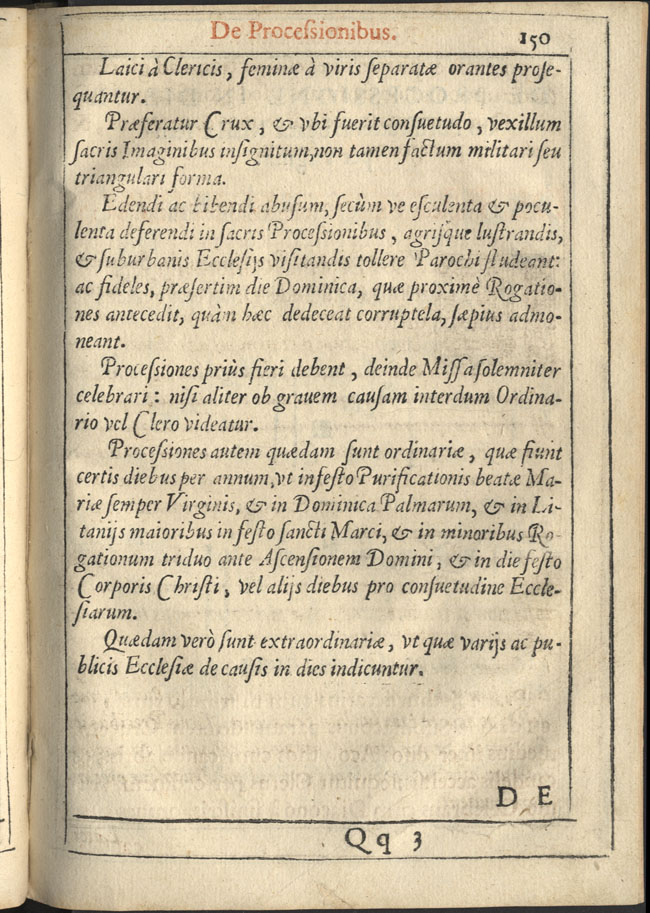 De Proceſsionibus.
150
Laici à Clericis, feminæ à viris ſeparatæ orantes proſe-
quantur.
Præferatur Crux, & vbi fuerit conſuetudo, vexillum
ſacris Imaginibus inſignitum, non tamen factum militari ſeu
triangulari forma.
Edendi ac bibendi abuſum, ſecùm ve eſculenta & pocu-
lenta deferendi in ſacris Proceſsionibus, agrijque luſtrandis,
& ſuburbanis Eccleſijs viſitandis tollere Parochi ſtudeant:
ac fideles, præſertim die Dominica, quæ proximè Rogatio-
nes antecedit, quàm hæc dedeceat corruptela, ſæpius admo-
neant.
Proceſsiones priùs fieri debent, deinde Miſſa ſolemniter
celebrari: niſi aliter ob grauem cauſam interdum Ordina-
rio vel Clero videatur.
Proceſsiones autem quædam ſunt ordinariæ, quæ fiunt
certis diebus per annum, vt in feſto Purificationis beatæ Ma-
riæ ſemper Virginis, & in Dominica Palmarum, & in Li-
tanijs maioribus in feſto ſancti Marci, & in minoribus Ro-
gationum triduo ante Aſcenſionem Domini, & in die feſto
Corporis Chriſti, vel alijs diebus pro conſuetudine Eccle-
ſiarum.
Quædam verò ſunt extraordinariæ, vt quæ varijs ac pu-
blicis Eccleſiæ de cauſis in dies indicuntur.
D E
Qq 3